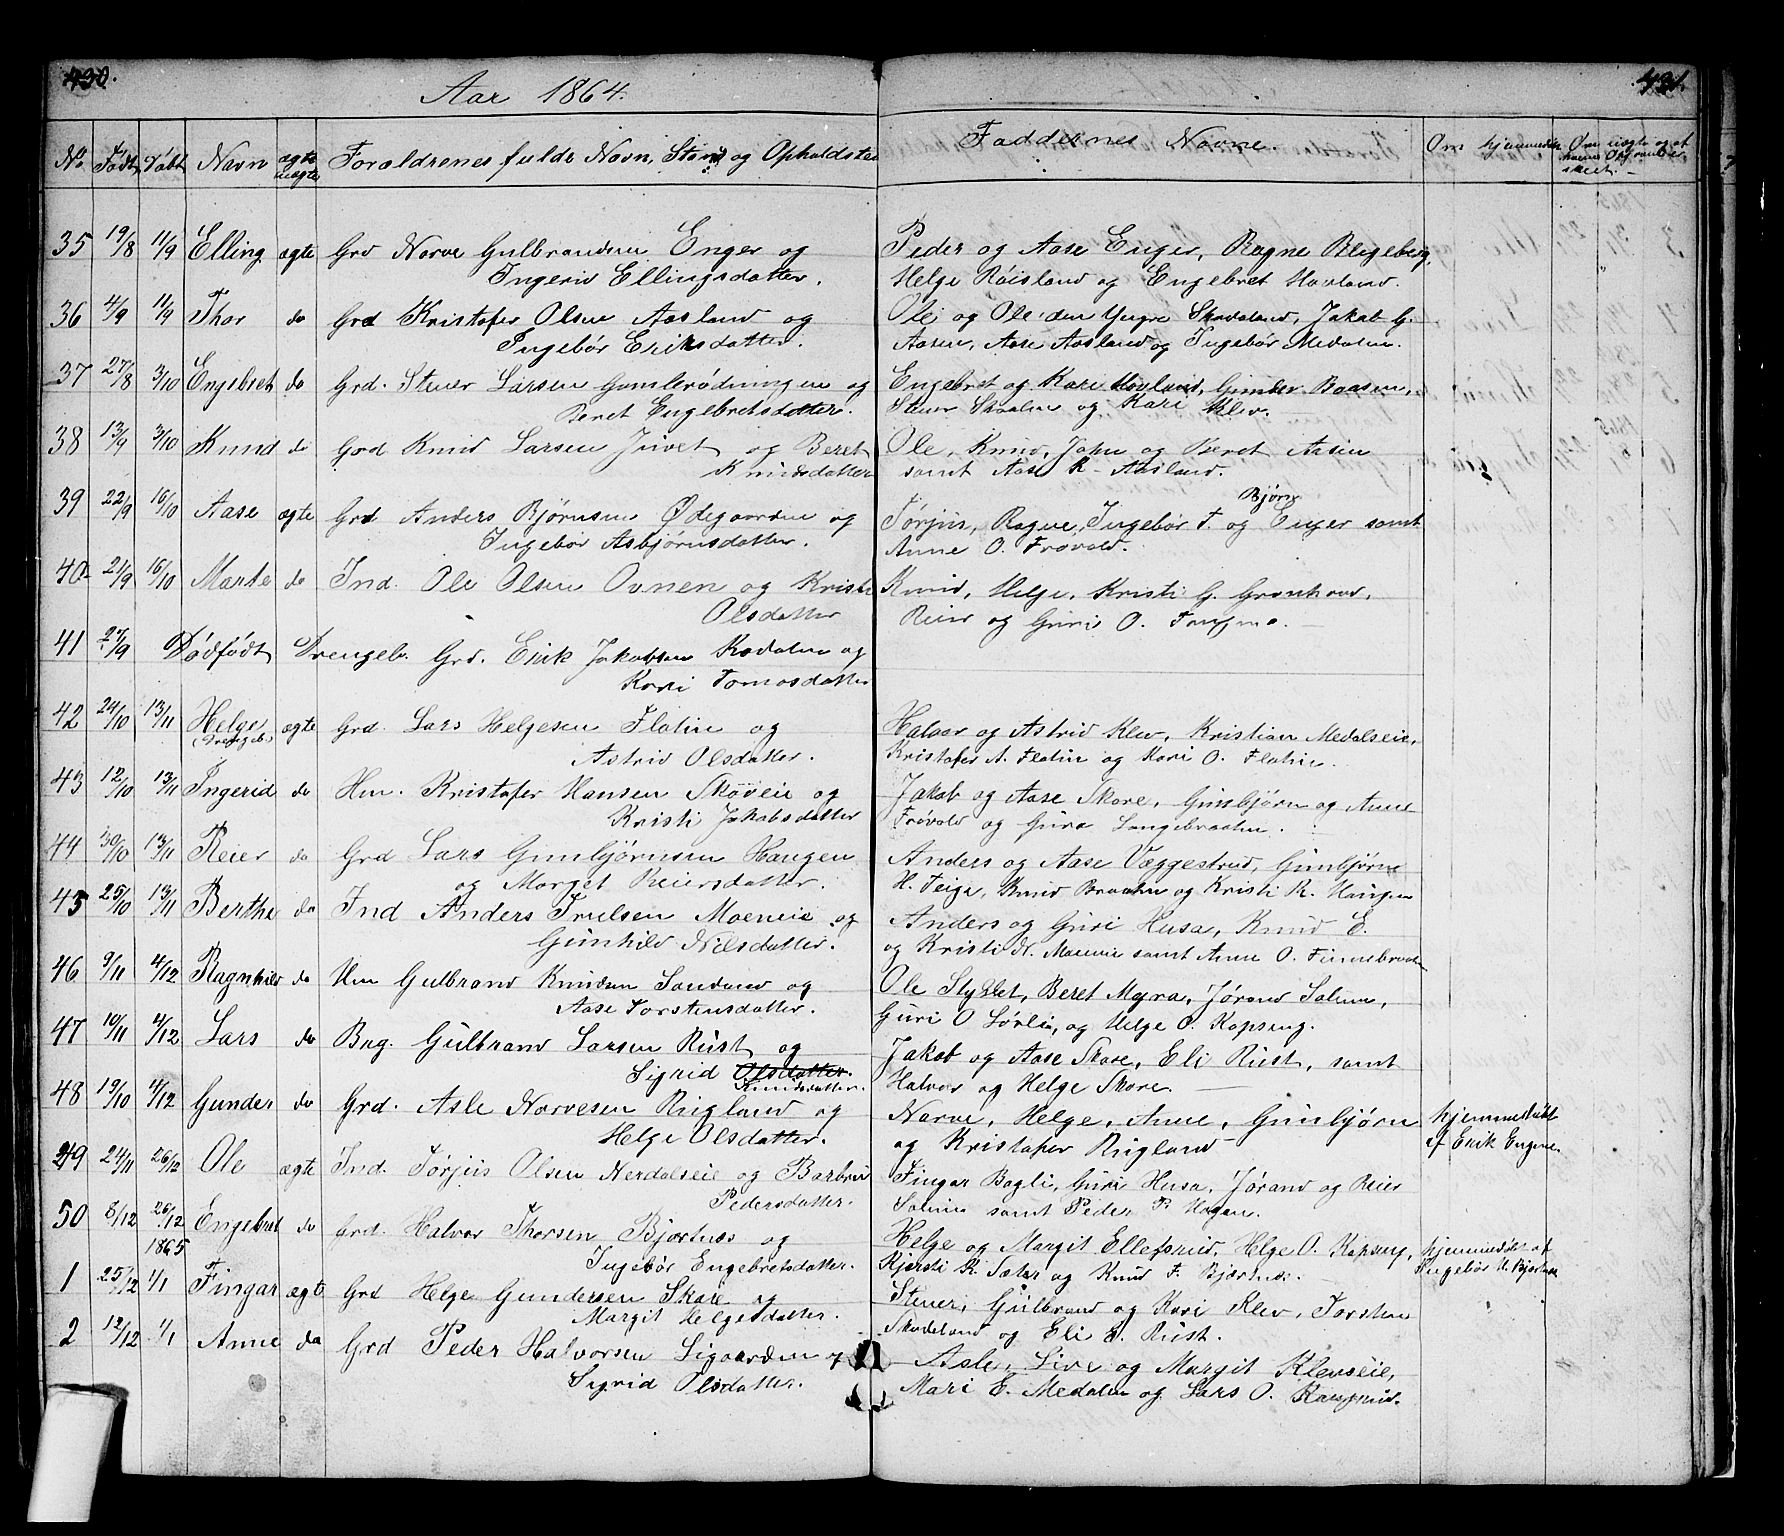 430.
Aar 1864.
431.
No. Født Døbt Navn ægte uægte Forældrenes fulde Navn, Stand og Opholdsted
Faddernes Navne.
Om hjemmedøbt
35 19/8 11/9 Elling ægte Grd Narve Gulbrandsen Enger og
Ingerid Ellingsdatter.
Peder og Aase Enger, Ragne Bligeberg,
Helge Röisland og Engebret Hovland.
36 4/9 11/9 Thor do Grd Kristofer Olsen Aasland og
Ingebør Eriksdatter.
Ole og Ole den Yngre Skadeland, Jakob G.
Aasen, Aase Aasland og Ingebør Medalen.
37 27/8 3/10 Engebret do Grd. Stener Larsen Gamlerødningen og
Beret Engebretsdatter.
Engebret og Kari Hovland, Gunder Baasen,
Stener Skaalen og Kari Klev.
38 13/9 3/10 Knud do Grd Knud Larsen Juvet og Beret
Knudsdatter
Ole, Knud, John og Beret Aasen
samt Aase K. Aasland.
39 22/9 16/10 Aase ægte Grd Anders Bjørnsen Ødegaarden og
Ingebør Asbjørnsdatter.
Bjørn
Törjüs, Ragne, Ingebør T. og Enger samt
Anne O. Frøvold.
40 21/9 16/10 Marte do Ind. Ole Olsen Ovnen og Kristi
Olsdatter
Knud, Helge, Kristi G. Grønhovd,
Reier og Guri O.
41 27/9 Dödfödt Drengeb. Grd. Erik Jakobsen Rodalen og
Kari Tomasdatter
42 24/10 13/11 Helge ægte Grd. Lars Helgesen Flatin og
(Drengeb.)
Astrid Olsdatter.
Halvor og Astrid Klev, Kristian Medalseie,
Kristofer A. Flatin og Kari O. Flatin.
43 12/10 13/11 Ingerid do Hm. Kristofer Hansen Skøveie og
Kristi Jakobsdatter
Jakob og Aase Skare, Gunbjørn og Anne
Frövold og Guro Langebraaten.
44 30/10 13/11 Reier do Grd Lars Gunbjørnsen Haugen
og Marget Reiersdatter.
Anders og Aase Væggestrud, Gunbjørn
H. Teige, Knud Braaten og Kristi R. Haugen
45 25/10 13/11 Berthe do Ind Anders Trulsen Moeneie og
Gunhild Nilsdatter.
Anders og Guri Husa, Knud E.
og Kristi N. Moeneie samt Anne O. Finnebraaten
46 9/11 4/12 Ragnhild do Hm Gulbrand Knudsen Sandand og
Aase Torstensdatter.
Ole Stykket, Beret Myra, Jörand Solum,
Guri O Lörlie, og Helge O. Kopseng.
47 10/11 4/12 Lars do Brg. Gulbrand Larsen Rust og
Sigrid Olsdatter.
Knudsdatter.
Jakob og Aase Skare, Eli Rust, samt
Halvor og Helge Skare.
48 19/10 4/12 Gunder do Grd. Asle Narvesen Ringland og
Helge Olsdatter.
Narve, Helge, Anne, Gunbjørn
og Kristofer Ringland
hjemmedøbt
af Erik Engene.
49 24/11 26/12 Ole ægte Ind. Törjüs Olsen Nerdalseie og Barbru
Pedersdatter.
Fingar Bagli, Guri Husa, Jörand og Reier
Solum samt Peder P. Hagan.
50 8/12 26/12 Engebret do Grd. Halvor Thorsen Bjørtnæs og
Ingebør Engebretsdatter.
Helge og Margit Ellefsrud, Helge O. Kopseng,
Kjersti K. Sæter og Knud T. Bjærtnæs.
hjemmedøbt af
Ingebør H. Bjertnæs
1865
1 25/12 1/1 Fingar ægte Grd Helge Gundersen Skare og
Margit Helgesdatter.
Stener, Gulbrand og Kari Klev, Torsten
Skadeland og Eli E. Rust.
2 12/12 1/1 Anne do Grd Peder Halvorsen Ligaarden og
Sigrid Olsdatter.
Asle, Live og Margit Klevseie,
Mari E. Medalen og Lars O.